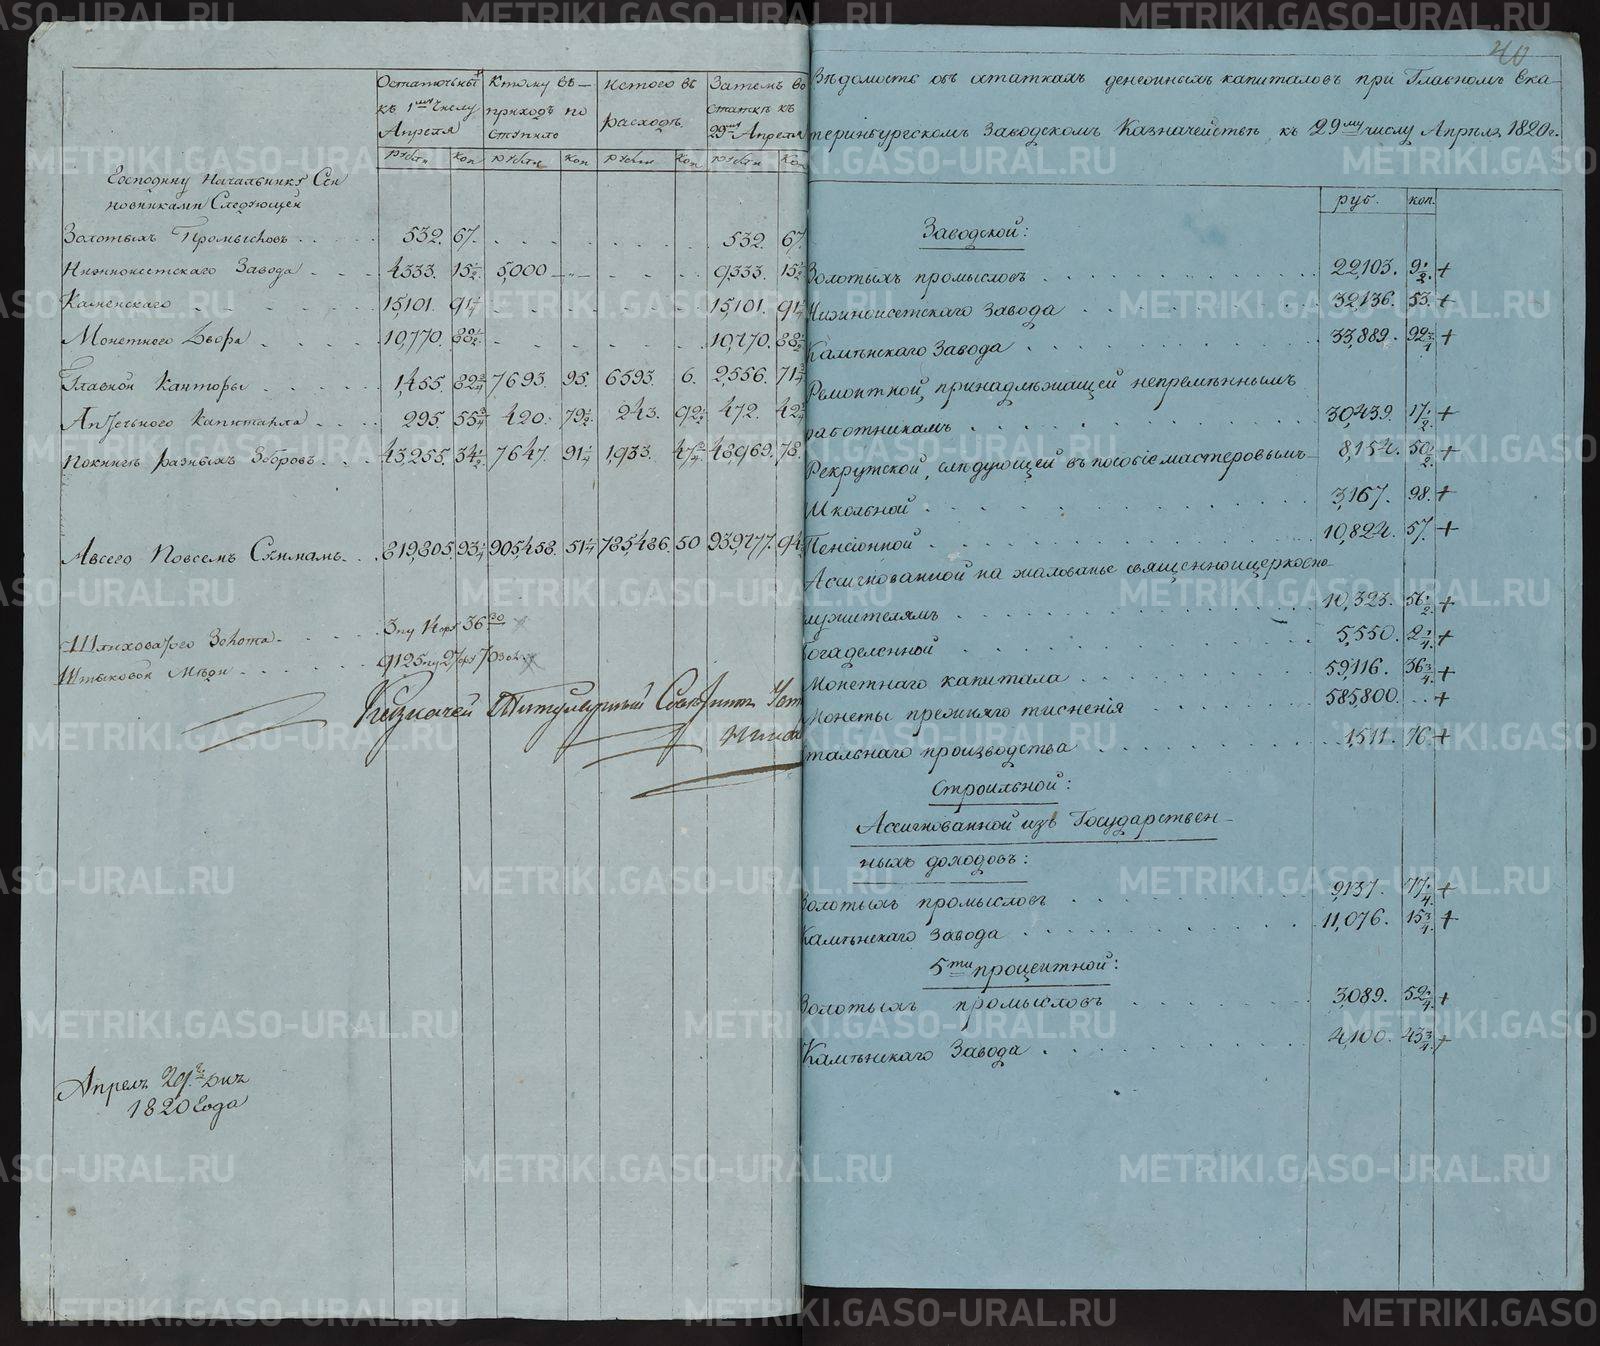 Остаточныхъ къ 1му числу Апреля
К тому въ приходъ поступило
Ис того въ расходъ
Затемъ въ остаткѣ къ 29му Апреля
рубли коп рубли коп рубли коп рубли коп
Господину Начальнику
Следующей
Золотыхъ Промысловъ 532. 67. 532. 67.
Нижноисетскаго Завода 4333. 15½ 5,000 — 9,333. 15½
Каменскаго 15,101. 91¼ 15,101. 91¼
Монетного Двора 10,770. 10,770.
Главной Канторы 1,455. 82¾ 7693. 95. 6593. 6. 2,556. 71¾
Аптечьного Капитала 295. 55¾ 420. 79½ 243. 92½ 472. 42¾
Покниге разныхъ Зборовъ 43,255. 34½ 7647. 91¼ 1,933. 47¾ 48,969. 78.
А всего Повсемъ Сummамъ 819,805. 93¼ 905,458. 51¼ 785,486. 50 939,777. 94½
Шлиховаго Золота 3 пу 14 фу 36
Штыковой Мѣди 9125 пу 27 фу 70 зол
Казначей Титулярный Советникъ
Апреля 29го дня
1820 Года
40
Вѣдомость объ остаткахъ денежныхъ капиталовъ при Главномъ Ека-
теринбургскомъ Заводскомъ Казначействѣ, къ 29му числу Апрѣля 1820 г.
руб. коп.
Заводской:
Золотыхъ промысловъ 22,103. 9½ +
Нижноисетскаго Завода 32,136. 53. +
Камѣнскаго Завода 33,889. 92¼ +
Ремонтной, принадлѣжащей непремѣннымъ
работникамъ 30,439. 17½ +
Рекрутской, слѣдующей въ пособіе мастеровымъ 8,154. 50½ +
Школьной 3,167. 98. +
Пенсіонной 10,824. 57. +
Ассигнованной на жалованье священноцерковно
служителямъ 10,323. 56½ +
Богаделенной 5,550. 2¼ +
Монетнаго капитала 59,116. 36¾ +
Монеты прежняго тисненія 585,800. . . +
Стальнаго производства 1,511. 76. +
Строильной:
Ассигнованной изъ Государствен-
ныхъ доходовъ:
Золотыхъ промысловъ 9,137. 77¼ +
Камѣнскаго Завода 11,076. 15¾ +
5ти процентной:
Золотыхъ промысловъ 3,089. 52¼ +
Камѣнскаго Завода 4,100. 43¾ +
METRIKI.GASO-URAL.RU